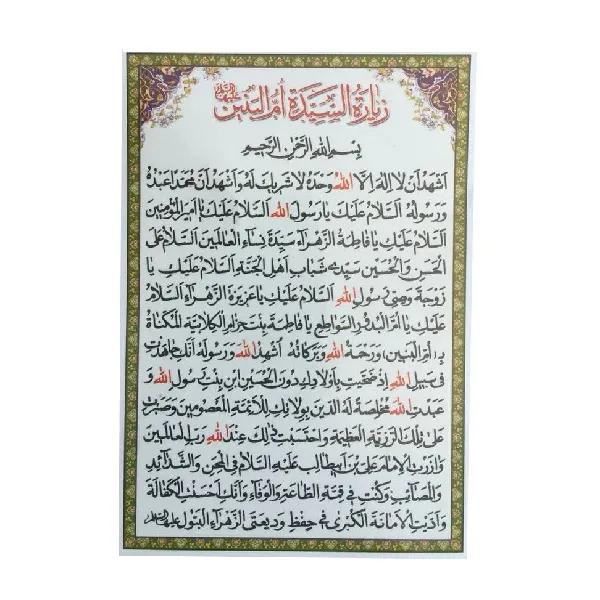 زيارة السيدة أم البنين عليها السلام
بسم الله الرحمن الرحيم
اشهد ان لا اله الا الله وحده لا شريك له واشهد ان محمدا عبده
ورسوله السلام عليك يا رسول الله السلام عليك يا امير المؤمنين
السلام عليك يا فاطمة الزهراء سيدة نساء العالمين السلام على
الحسن والحسين سيدي شباب اهل الجنة السلام عليك يا
زوجة وصي رسول الله السلام عليك يا عزيزة الزهراء السلام
عليك يا ام البدور السواطع يا فاطمة بنت حزام الكلابية المكناة
بـ ام البنين، ورحمة الله وبركاته اشهد الله ورسوله انك جاهدت
في سبيل الله اذ ضحيت باولادك دون الحسين ابن بنت رسول الله و
عبدت الله مخلصة له الدين بولائك للائمة المعصومين وصبرت
على تلك الرزية العظيمة واحتسبت ذلك عند الله رب العالمين
وازرت الامام علي بن ابي طالب عليه السلام في المحن والشدائد
والمصائب وكنت في قمة الطاعة والوفاء وانك احسنت الكفالة
واديت الامانة الكبرى في حفظ وديعتي الزهراء البتول عليها السلام